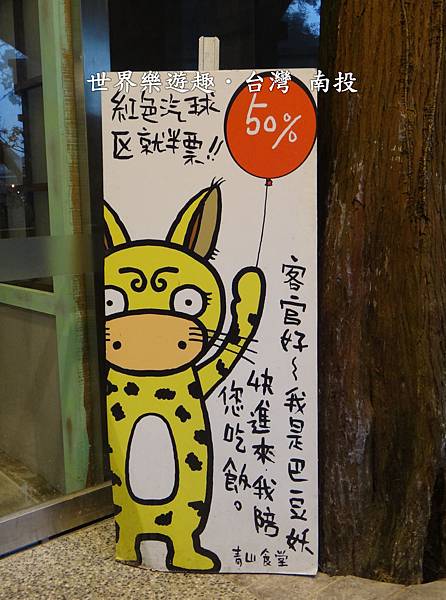 世界樂遊趣．台灣 南投
紅色汽球
区就半票!!
50%
客官好~我是巴豆妖
快進來,我陪
您吃飯。
青山食堂